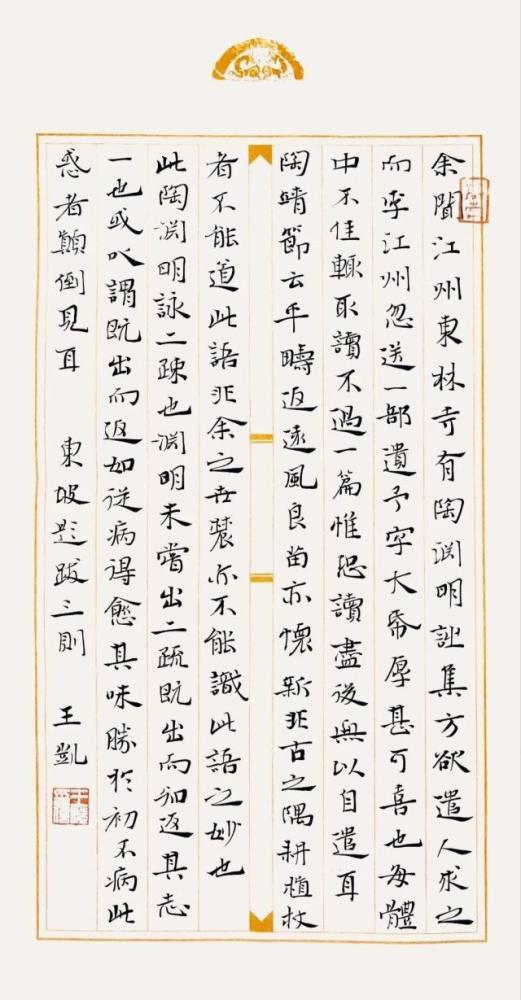 余聞江州東林寺有陶渊明詩集方欲遣人求之
而李江州忽送一部遺予字大帋厚甚可喜也每體
中不佳輒取讀不過一篇惟恐讀盡後無以自遣耳
陶靖節云平疇返遠風良苗亦懷新非古之隅耕植杖
者不能道此語非余之世農亦不能識此語之妙也
此陶渊明詠二疎也渊明未嘗出二疏既出而知返其志
一也或以謂既出而返如從病得愈其味勝於初不病此
惑者顛倒見耳 東坡題跋三則 王凱